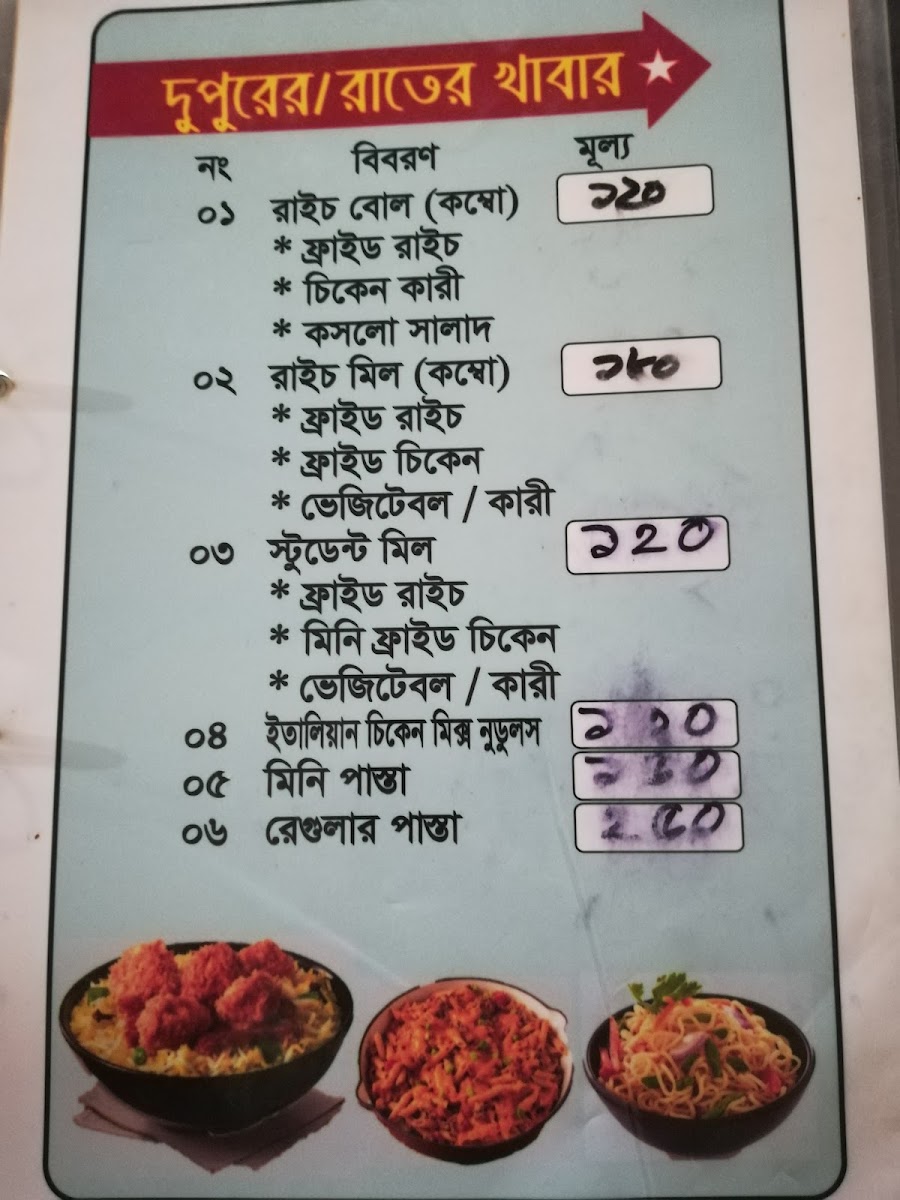 দুপুরের/রাতের খাবার
নং বিবরণ মূল্য
০১ রাইচ বোল (কম্বো) ১২০
* ফ্রাইড রাইচ
* চিকেন কারী
* কসলো সালাদ
০২ রাইচ মিল (কম্বো) ১৮০
* ফ্রাইড রাইচ
* ফ্রাইড চিকেন
* ভেজিটেবল / কারী
০৩ স্টুডেন্ট মিল ১২০
* ফ্রাইড রাইচ
* মিনি ফ্রাইড চিকেন
* ভেজিটেবল / কারী
০৪ ইতালিয়ান চিকেন মিক্স নুডুলস
০৫ মিনি পাস্তা
০৬ রেগুলার পাস্তা